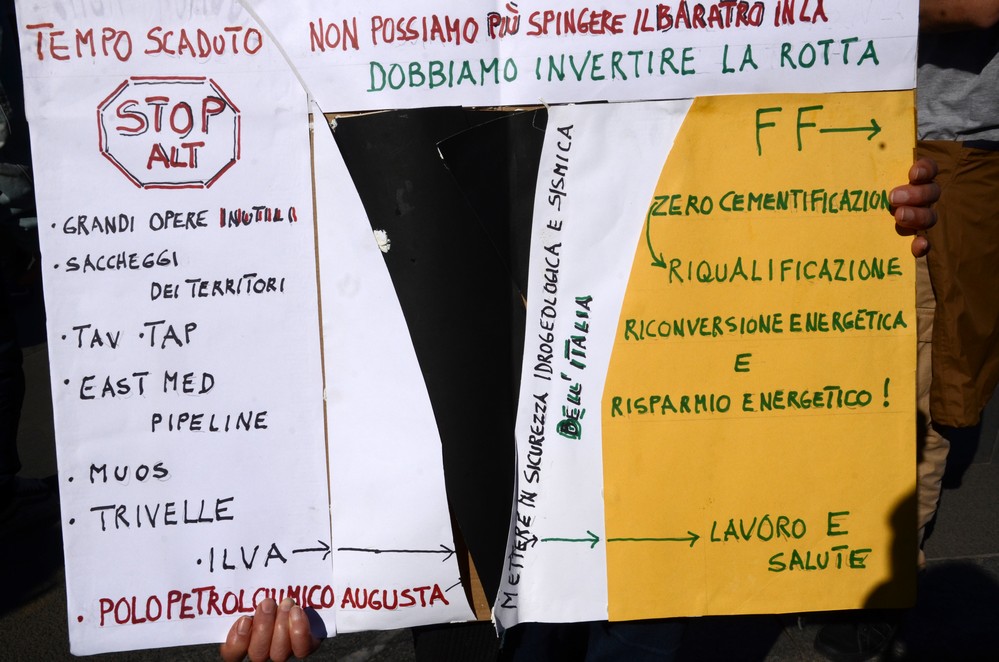 TEMPO SCADUTO
NON POSSIAMO PIÙ SPINGERE IL BARATRO IN LÀ
DOBBIAMO INVERTIRE LA ROTTA
STOP
ALT
· GRANDI OPERE INUTILI
· SACCHEGGI
DEI TERRITORI
· TAV · TAP
· EAST MED
PIPELINE
· MUOS
· TRIVELLE
· ILVA →
· POLO PETROLCHIMICO AUGUSTA
METTERE IN SICUREZZA IDROGEOLOGICA E SISMICA
DELL'ITALIA
FF →
ZERO CEMENTIFICAZION
RIQUALIFICAZIONE
RICONVERSIONE ENERGETICA
E
RISPARMIO ENERGETICO!
LAVORO E
SALUTE